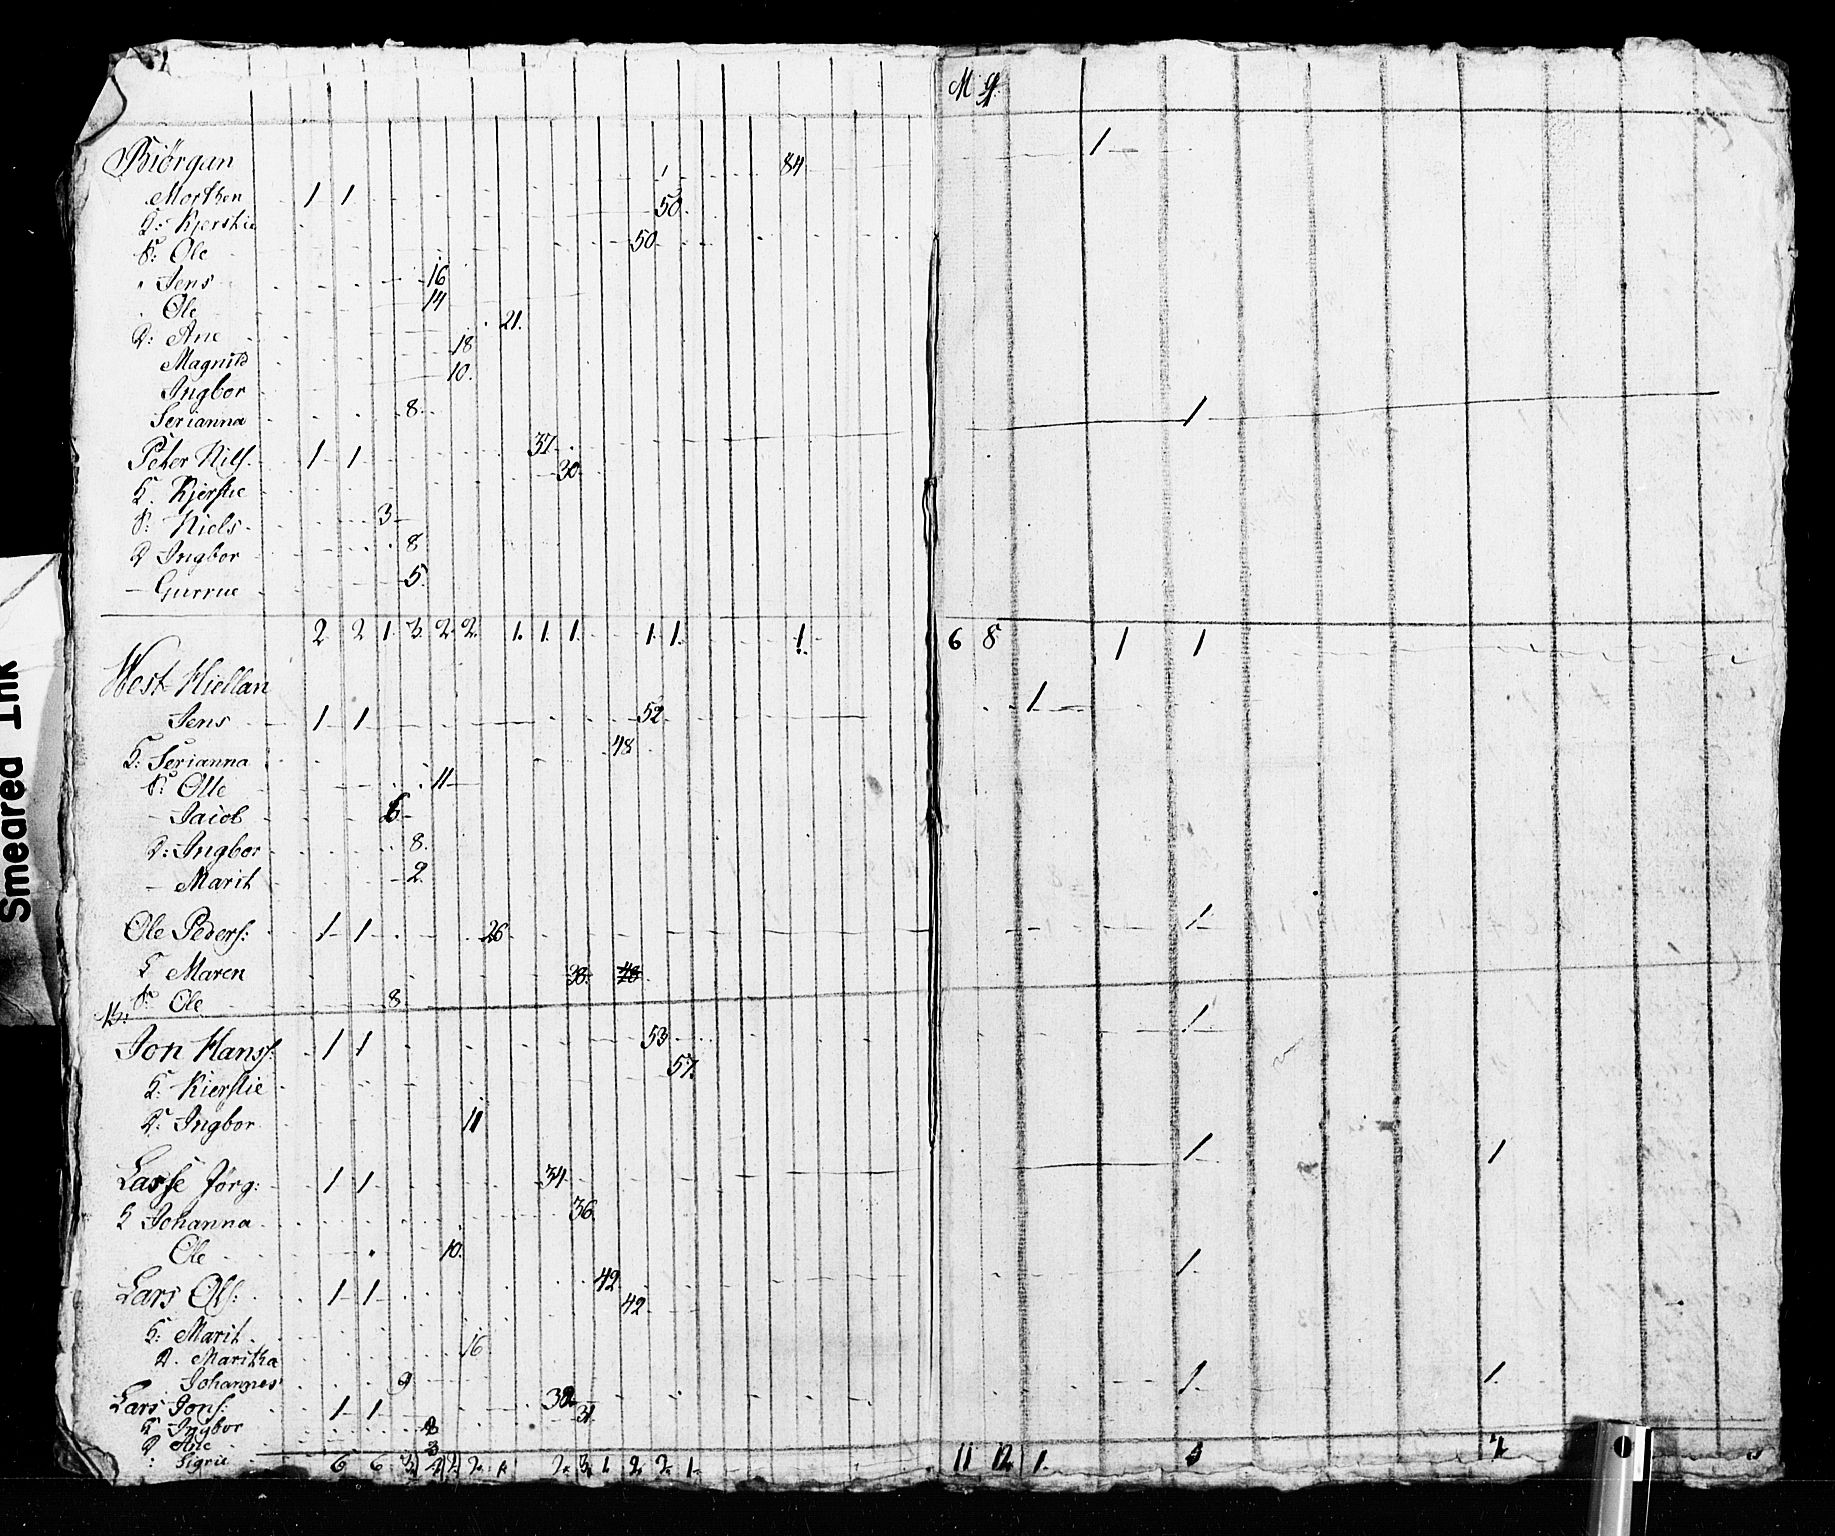 M. Qv.
Biörgan 84 1
Morthen 1 1 50
Q: Kjerstie 50
S: Ole
" Jens 16
Ole 14
D: Ane 21.
Magnild 18
Ingbor 10.
Serianna 8 1
Peter Nils. 1 1 37
K. Kjerstie 30
S: Niels 3
D Ingbor 8
— Gurrue 5
2 2 1 3 2 2 1. 1. 1. 1. 1. 1. 6 8 1 1
West Hiellan 1
Jens 1 1 52
K: Serianna 48
S: Olle 11
— Jacob 6
D: Ingbor 8.
— Marit 2
Ole Peders: 1 1 26 1
K Maren 38. 48
S: Ole 8
N:
Jon Hanss: 1 1 53 1
K: Kierstie 57.
D: Ingbor 11
Lasse Jörg: 1 1 34 1 1
K Johanna 36
Ole 10.
Lars Ols: 1 1 42 1
K: Marit 42
D. Maritha 16
Johannes 9
Lars Jons: 1 1 30 1 1
K Ingbor 31
D Ane
: Sigrie 3
6 6 3 4 2 2. 1. 2. 3. 1. 2. 2. 1. 11 12 1. 5 2
Smeared Ink